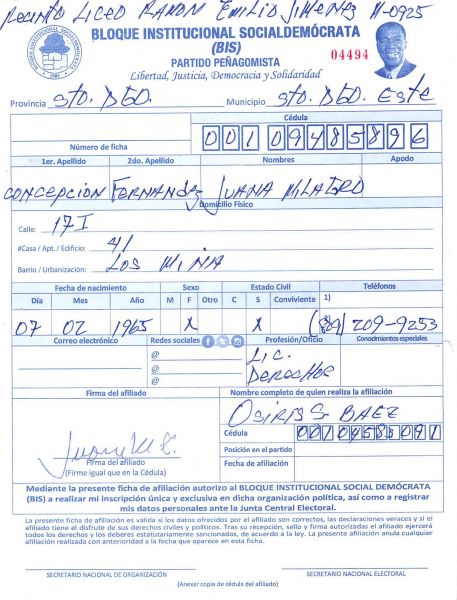 Recinto Liceo Ramon Emilio Jimenez #-0925
BLOQUE INSTITUCIONAL SOCIALDEMÓCRATA
(BIS)
PARTIDO PEÑAGOMISTA
04494
Libertad, Justicia, Democracia y Solidaridad
Provincia Sto. Dgo. Municipio Sto. Dgo. Este
Cédula
Número de ficha 00109485896
1er. Apellido 2do. Apellido Nombres Apodo
Concepcion Fernandez Juana Milagro
Domicilio Físico
Calle: 17 I
#Casa / Apt. / Edificio: 41
Barrio / Urbanización: Los Mina
Fecha de nacimiento Sexo Estado Civil Teléfonos
Día Mes Año M F Otro C S Conviviente 1)
07 02 1965 X X (829) 209-9253
Correo electrónico Redes sociales Profesión/Oficio Conocimientos especiales
@ Lic.
@ Derechos
@
Firma del afiliado Nombre completo de quien realiza la afiliación
Osiris S. Baez
Cédula 00104583091
Posición en el partido
Firma del afiliado Fecha de afiliación
(Firme igual que en la Cédula)
Mediante la presente ficha de afiliación autorizo al BLOQUE INSTITUCIONAL SOCIAL DEMÓCRATA
(BIS) a realizar mi inscripción única y exclusiva en dicha organización política, así como a registrar
mis datos personales ante la Junta Central Electoral.
La presente ficha de afiliación es válida si los datos ofrecidos por el afiliado son correctos, las declaraciones veraces y si el
afiliado tiene el disfrute de sus derechos civiles y políticos. Tras su recepción, sello y firma autorizadas el afiliado ejercerá
todos los derechos y los deberes estatutariamente sancionados, de acuerdo a la ley. La presente afiliación anula cualquier
afiliación realizada con anterioridad a la fecha que aparece en esta ficha.
SECRETARIO NACIONAL DE ORGANIZACIÓN SECRETARIO NACIONAL ELECTORAL
(Anexar copia de cédula del afiliado)